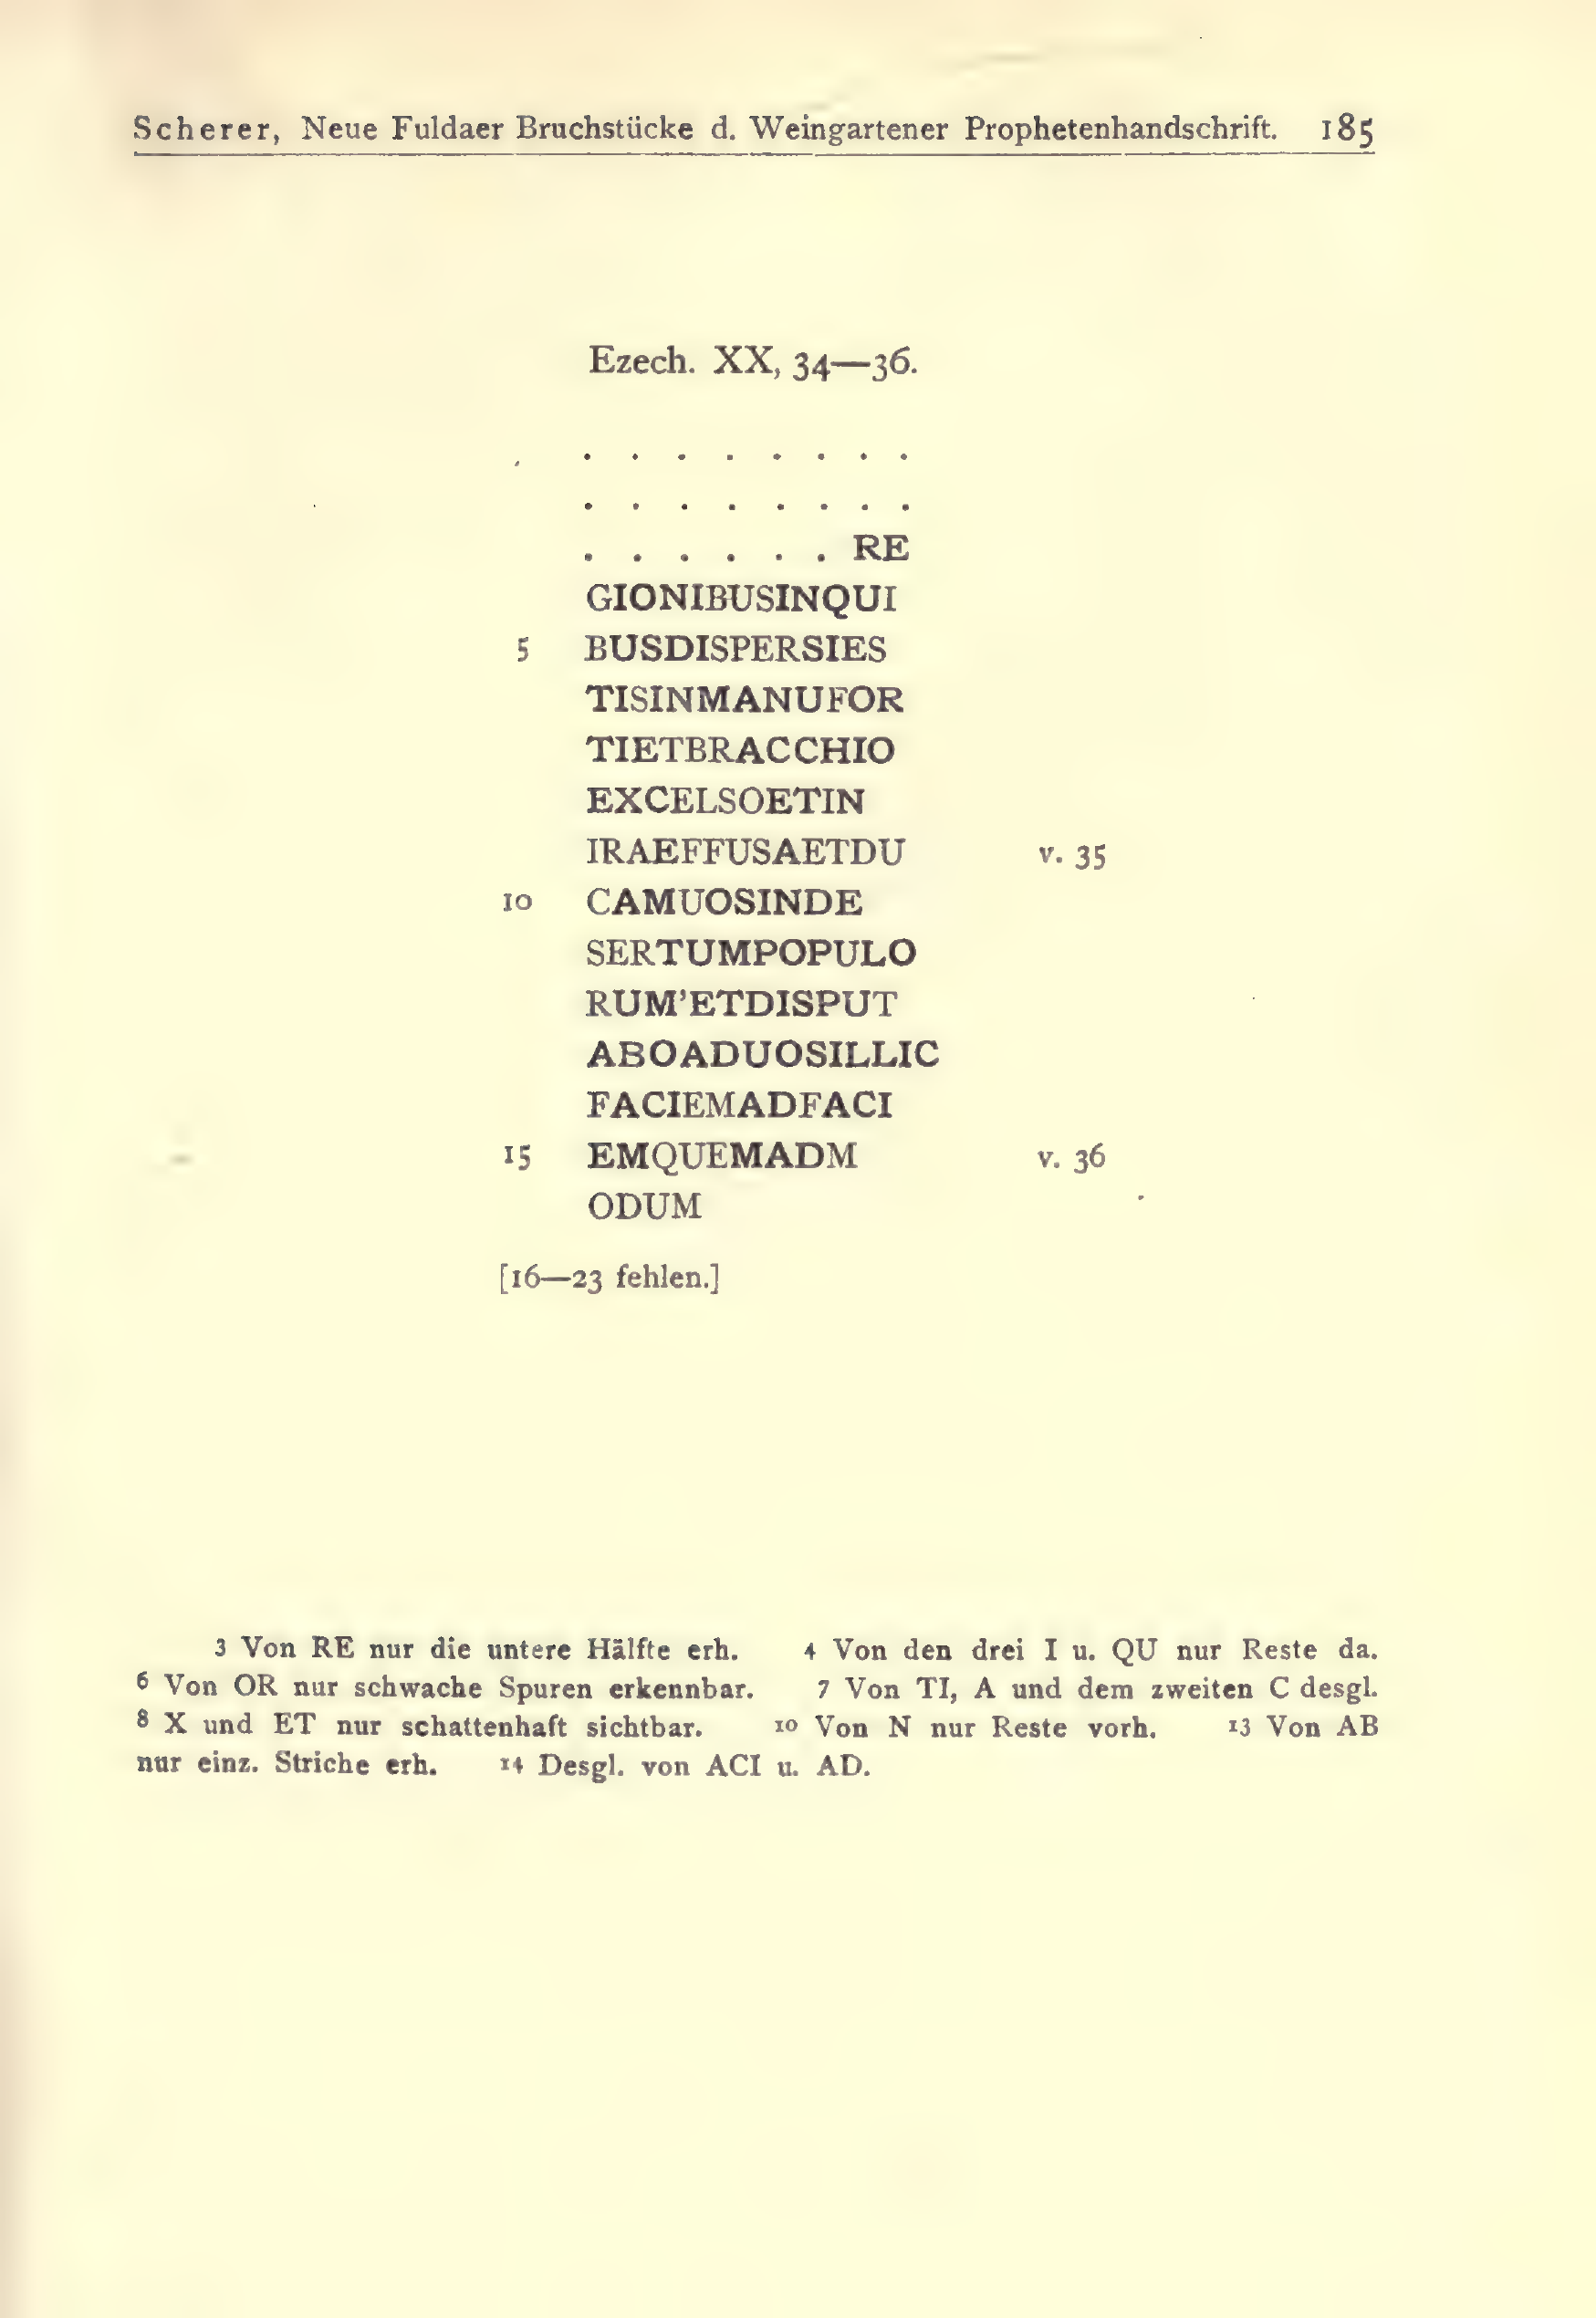 Scherer, Neue Fuldaer Bruchstücke d. Weingartener Prophetenhandschrift. 185
Ezech. XX, 34—36.
. . . . . . . .
. . . . . . . .
. . . . . . RE
GIONIBUSINQUI
5 BUSDISPERSIES
TISINMANUFOR
TIETBRACCHIO
EXCELSOETIN
IRAEFFUSAETDU v. 35
10 CAMUOSINDE
SERTUMPOPULO
RUM'ETDISPUT
ABOADUOSILLIC
FACIEMADFACI
15 EMQUEMADM v. 36
ODUM
[16—23 fehlen.]
3 Von RE nur die untere Hälfte erh. 4 Von den drei I u. QU nur Reste da.
6 Von OR nur schwache Spuren erkennbar. 7 Von TI, A und dem zweiten C desgl.
8 X und ET nur schattenhaft sichtbar. 10 Von N nur Reste vorh. 13 Von AB
nur einz. Striche erh. 14 Desgl. von ACI u. AD.